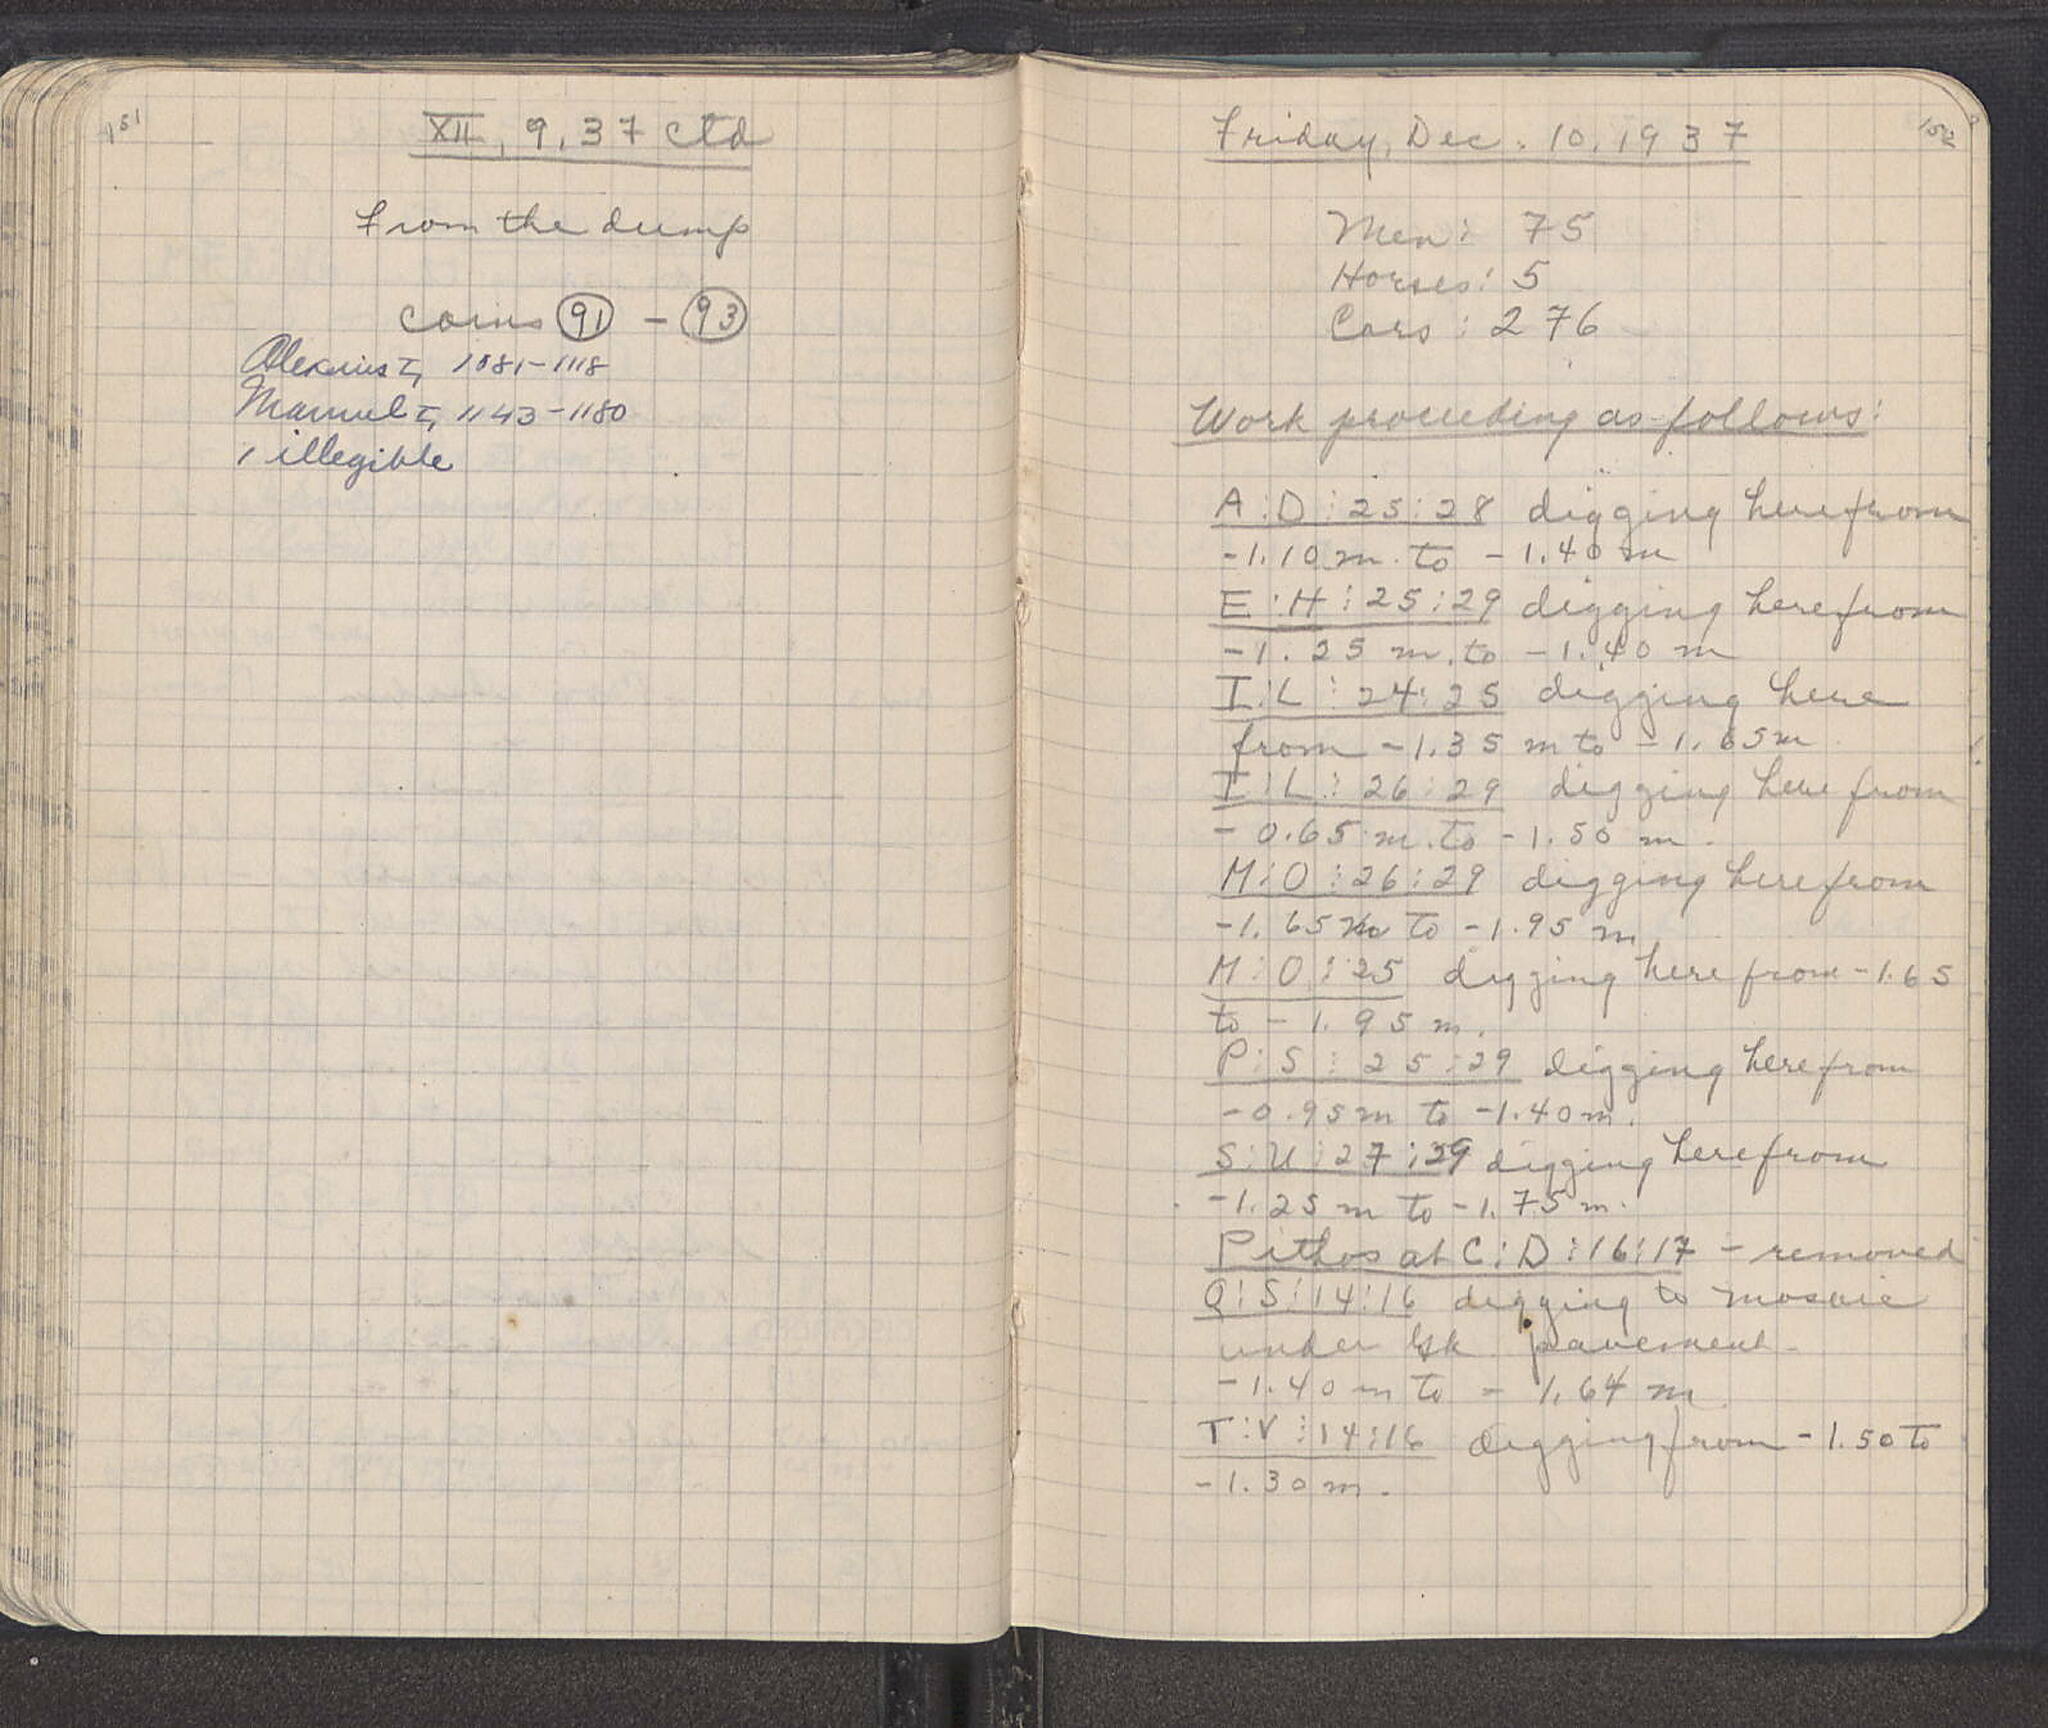 151
XII, 9, 37 ctd
From the dump
coins 91 - 93
Alexius I, 1081-1118
Manuel I, 1143-1180
1 illegible
152
Friday, Dec. 10, 1937
Men: 75
Horses: 5
Cars: 276
Work proceeding as follows:
A:D:25:28 digging here from
-1.10 m. to -1.40 m
E:H:25:29 digging here from
-1.25 m. to -1.40 m
I:L:24:25 digging here
from -1.35 m to -1.65 m
I:L:26:29 digging here from
-0.65 m. to -1.50 m.
M:O:26:29 digging here from
-1.65 m to -1.95 m
M:O:25 digging here from -1.65
to -1.95 m.
P:S:25:29 digging here from
-0.95 m to -1.40 m.
S:U:27:29 digging here from
-1.25 m to -1.75 m.
Pithos at C:D:16:17 - removed
Q:S:14:16 digging to mosaic
under Gk pavement.
-1.40 m to -1.64 m
T:V:14:16 digging from -1.50 to
-1.30 m.